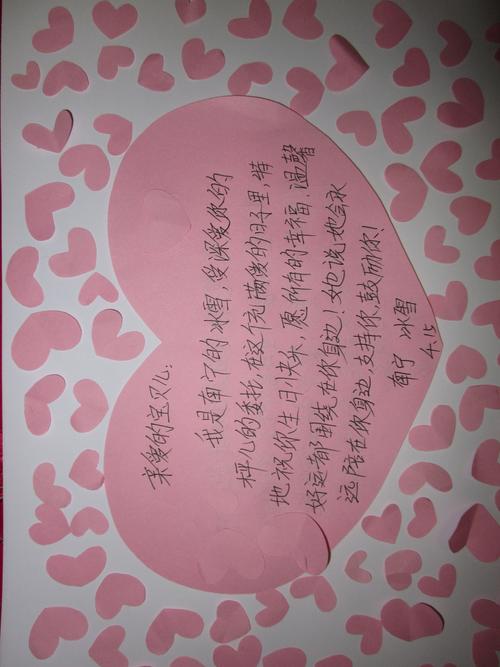 亲爱的宝贝儿：
我是南宁的冰雪，受深爱你的
秤儿的委托，在这个充满爱的日子里，特
地祝你生日快乐，愿所有的幸福、温馨
好运都围绕在你身边！她说，她会永
远陪在你身边，支持你，鼓励你！
南宁 冰雪
4.15